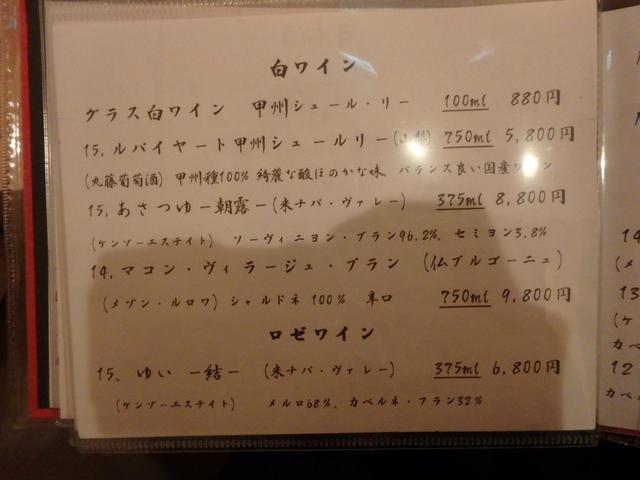 白ワイン
グラス白ワイン 甲州シュール・リー 100ml 880円
15, ルバイヤート甲州シュールリー(山梨) 750ml 5,800円
(丸藤葡萄酒) 甲州種100% 綺麗な酸ほのかな味 バランス良い国産ワイン
15, あさつゆ－朝露－(米ナパ・ヴァレー) 375ml 8,800円
(ケンゾーエステイト) ソーヴィニヨン・ブラン96.2%、セミヨン3.8%
14, マコン・ヴィラージュ・ブラン (仏ブルゴーニュ)
(メゾン・ルロワ) シャルドネ 100% 辛口 750ml 9,800円
ロゼワイン
15、ゆい －結－ (米ナパ・ヴァレー) 375ml 6,800円
(ケンゾーエステイト) メルロ68%、カベルネ・フラン32%
14
(メ
13
(ケ
カベ
12
カベ